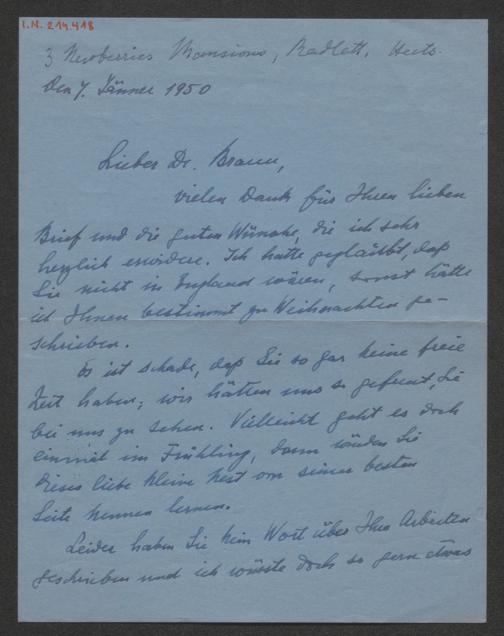 I.N. 214.418
3 Newberries Mansions, Radlett, Herts.
Den 7. Jänner 1950
Lieber Dr. Braun,
vielen Dank für Ihren lieben
Brief und die guten Wünsche, die ich sehr
herzlich erwidere. Ich hatte geglaubt, daß
Sie nicht in England wären, sonst hätte
ich Ihnen bestimmt zu Weihnachten ge-
schrieben.
Es ist schade, daß Sie so gar keine freie
Zeit haben; wir hätten uns so gefreut, Sie
bei uns zu sehen. Vielleicht geht es doch
einmal im Frühling, dann würden Sie
dieses liebe kleine Nest von seiner besten
Seite kennen lernen.
Leider haben Sie kein Wort über Ihre Arbeiten
geschrieben und ich wüsste doch so gern etwas